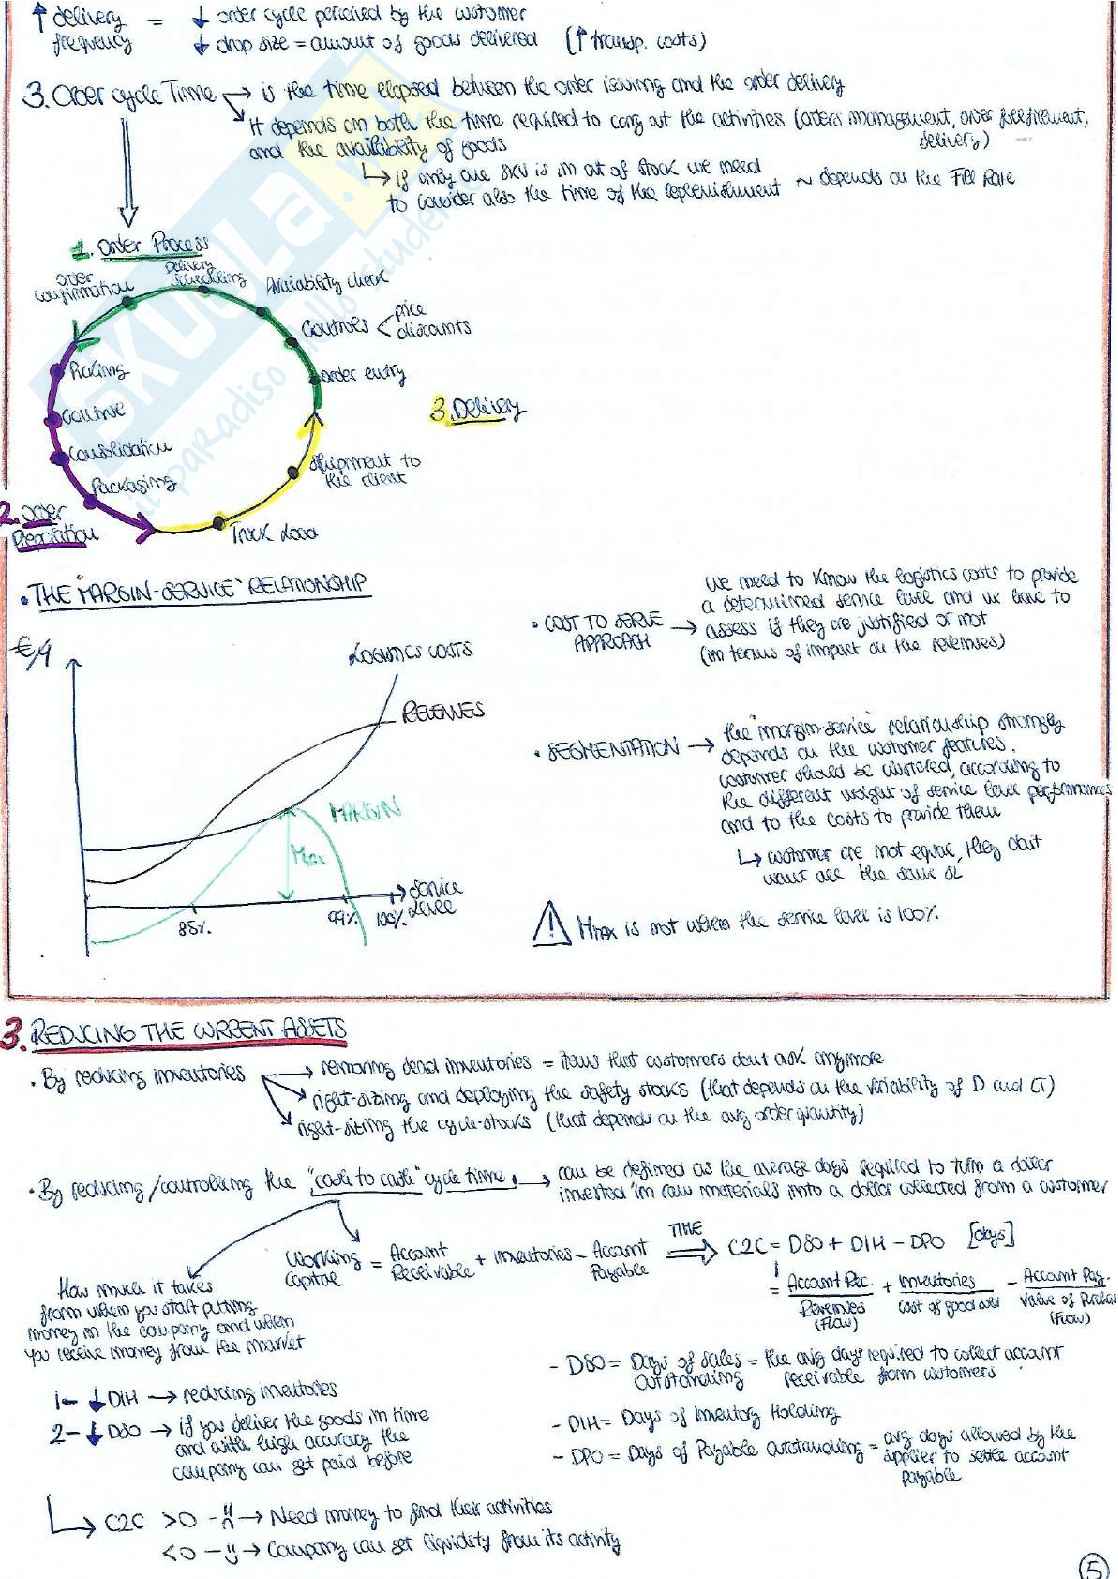 ↑ delivery = ↓ order cycle perceived by the customer
frequency ↓ drop size = amount of goods delivered (↑ transp. costs)
3. Order cycle Time → is the time elapsed between the order issuing and the order delivery
It depends on both the time required to carry out the activities (orders management, order fulfillment, delivery)
and the availability of goods
↳ if only one SKU is in out of stock we need
to consider also the time of the replenishment ~ depends on the Fill Rate
1. Order Process
order confirmation
Delivery scheduling
Availability check
Controls < price discounts
order entry
Picking
Control
Consolidation
Packaging
2. Order Preparation
3. Delivery
shipment to
the client
Truck load
SKUOLA
il paradiso dello studente
• THE "MARGIN-SERVICE" RELATIONSHIP
€/q
LOGISTICS COSTS
REVENUES
MARGIN
Max
Service
Level
85%
99%
100%
• COST TO SERVE APPROACH → we need to know the logistics costs to provide
a determined service level and we have to
assess if they are justified or not
(in terms of impact on the revenues)
• SEGMENTATION → the "margin-service" relationship strongly
depends on the customer features.
customer should be clustered, according to
the different weight of service level performances
and to the costs to provide them
↳ customer are not equal, they don't
want all the same SL
⚠ Mmax is not when the service level is 100%
3. REDUCING THE CURRENT ASSETS
• By reducing inventories → removing dead inventories = items that customers don't ask anymore
→ right-sizing and deploying the safety stocks (that depends on the variability of D and LT)
→ right-sizing the cycle-stocks (that depends on the avg order quantity)
• By reducing/controlling the "cash to cash" cycle time → can be defined as the average days required to turn a dollar
invested in raw materials into a dollar collected from a customer
Working Capital = Account Receivable + Inventories - Account Payable
TIME ⇒ C2C = DSO + DIH - DPO [days]
= Account Rec. / Revenues (Flow) + Inventories / cost of good sold - Account Pay. / Value of Purchas (Flow)
How much it takes
from when you start putting
money in the company and when
you receive money from the market
- DSO = Days of Sales Outstanding = the avg days required to collect account
receivable from customers
1- ↓ DIH → reducing inventories
2- ↓ DSO → if you deliver the goods in time
and with high accuracy the
company can get paid before
- DIH = Days of Inventory Holding
- DPO = Days of Payable outstanding = avg days allowed by the
supplier to settle account
payable
↳ C2C >0 → Need money to fund their activities
<0 → Company can get liquidity from its activity
5